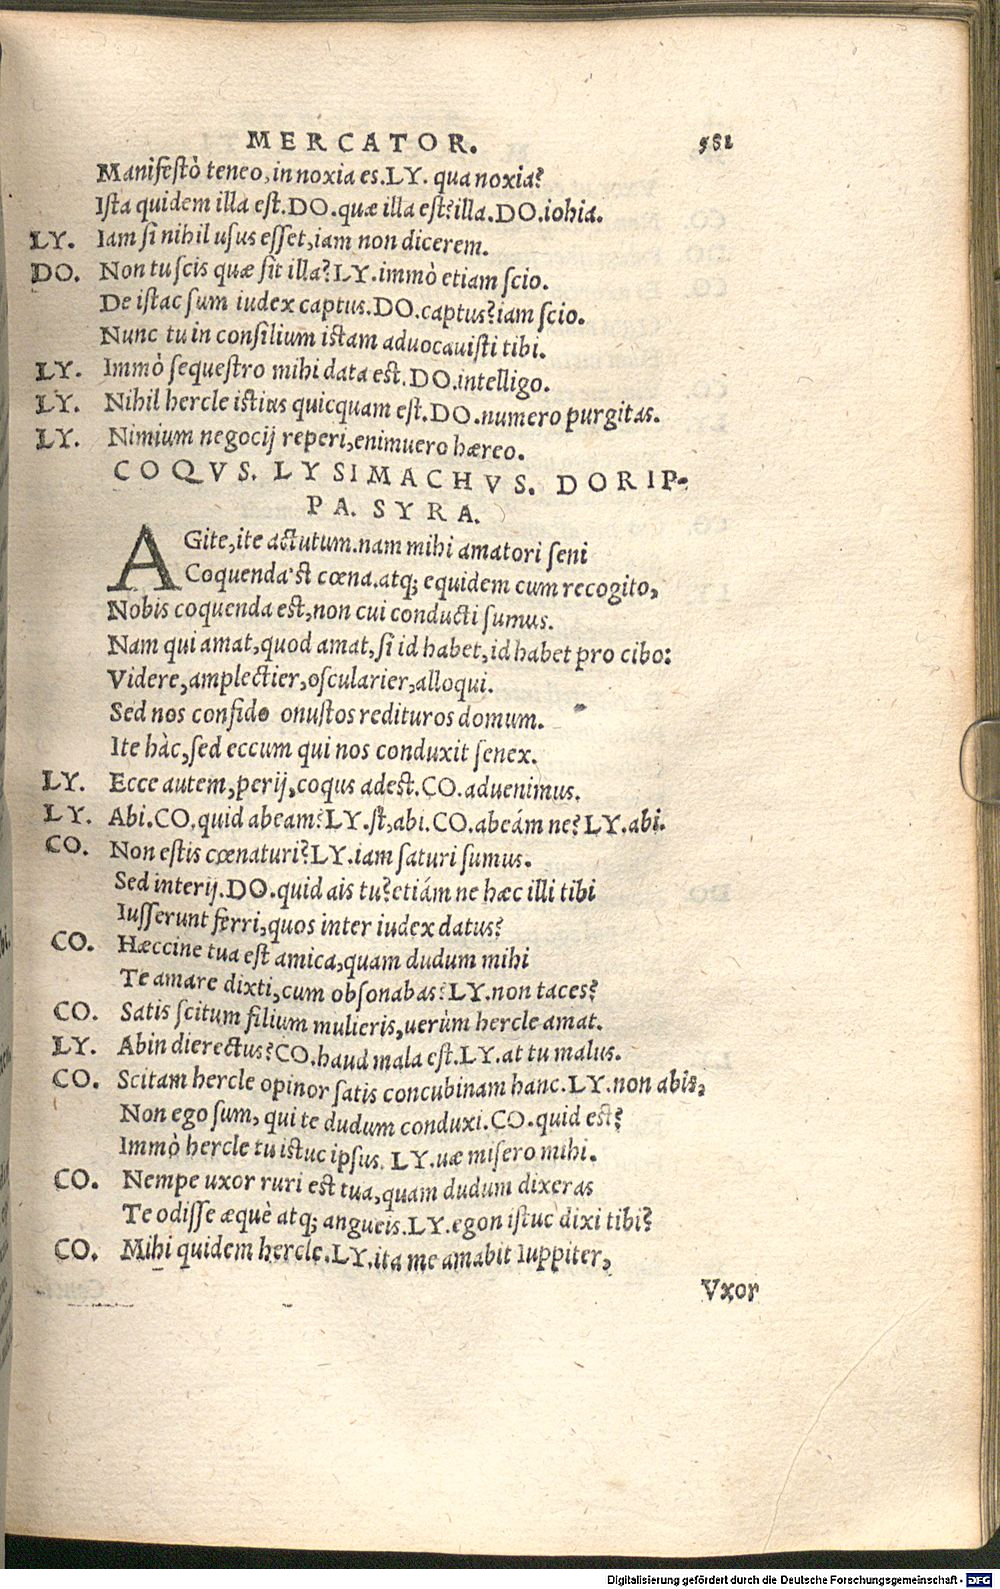 MERCATOR. 581
Manifestò teneo, in noxia es. LY. qua noxia?
Ista quidem illa est. DO. quæ illa est? illa. DO. iohia.
LY. Iam si nihil usus esset, iam non dicerem.
DO. Non tu scis quæ sit illa? LY. immò etiam scio.
De istac sum iudex captus. DO. captus? iam scio.
Nunc tu in consilium istam aduocauisti tibi.
LY. Immò sequestro mihi data est. DO. intelligo.
LY. Nihil hercle istius quicquam est. DO. numero purgitas.
LY. Nimium negocij reperi, enimuero hæreo.
COQVS. LYSIMACHVS. DORIP-
PA. SYRA.
AGite, ite actutum. nam mihi amatori seni
Coquenda'st cœna. atq; equidem cum recogito,
Nobis coquenda est, non cui conducti sumus.
Nam qui amat, quod amat, si id habet, id habet pro cibo:
Videre, amplectier, oscularier, alloqui.
Sed nos confido onustos redituros domum.
Ite hàc, sed eccum qui nos conduxit senex.
LY. Ecce autem, perij, coqus adest. CO. aduenimus.
LY. Abi. CO. quid abeam? LY. st, abi. CO. abeám ne? LY. abi.
CO. Non estis cœnaturi? LY. iam saturi sumus.
Sed interij. DO. quid ais tu? etiám ne hæc illi tibi
Iusserunt ferri, quos inter iudex datus?
CO. Hæccine tua est amica, quam dudum mihi
Te amare dixti, cum obsonabas? LY. non taces?
CO. Satis scitum filium mulieris, uerùm hercle amat.
LY. Abin dierectus? CO. haud mala est. LY. at tu malus.
CO. Scitam hercle opinor satis concubinam hanc. LY. non abis,
Non ego sum, qui te dudum conduxi. CO. quid est?
Immò hercle tu istuc ipsus. LY. uæ misero mihi.
CO. Nempe uxor ruri est tua, quam dudum dixeras
Te odisse æquè atq; angueis. LY. egon istuc dixi tibi?
CO. Mihi quidem hercle. LY. ita me amabit Iuppiter,
Vxor
Digitalisierung gefördert durch die Deutsche Forschungsgemeinschaft - DFG